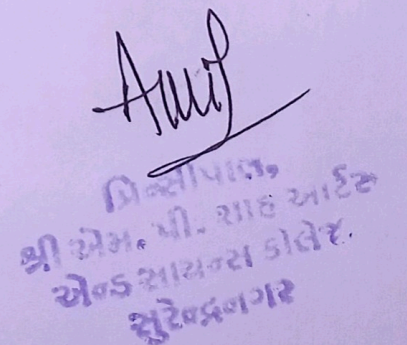 Amil
પ્રિન્સીપાલ,
શ્રી એમ. પી. શાહ આર્ટસ
એન્ડ સાયન્સ કોલેજ.
સુરેન્દ્રનગર